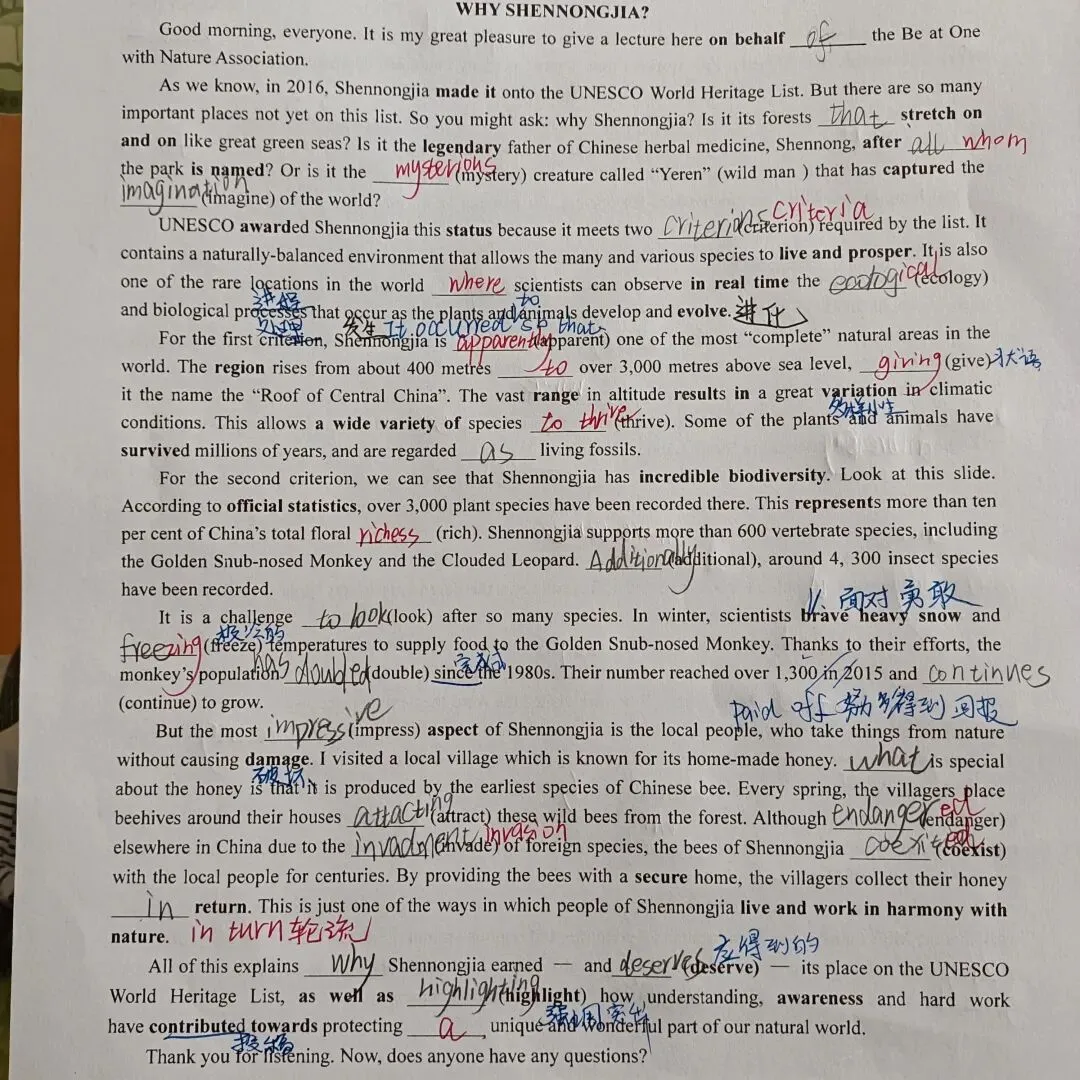 WHY SHENNONGJIA?
Good morning, everyone. It is my great pleasure to give a lecture here on behalf of the Be at One
with Nature Association.
As we know, in 2016, Shennongjia made it onto the UNESCO World Heritage List. But there are so many
important places not yet on this list. So you might ask: why Shennongjia? Is it its forests that stretch on
and on like great green seas? Is it the legendary father of Chinese herbal medicine, Shennong, after all whom
the park is named? Or is it the mysterious (mystery) creature called “Yeren” (wild man ) that has captured the
imagination (imagine) of the world?
UNESCO awarded Shennongjia this status because it meets two criterions criteria (criterion) required by the list. It
contains a naturally-balanced environment that allows the many and various species to live and prosper. It is also
one of the rare locations in the world where scientists can observe in real time the ecological (ecology)
进程 to
and biological processes that occur as the plants and animals develop and evolve. 进化
处理 发生 It occurred sp that
For the first criterion, Shennongjia is apparently (apparent) one of the most “complete” natural areas in the
world. The region rises from about 400 metres to over 3,000 metres above sea level, giving (give) 状语
it the name the “Roof of Central China”. The vast range in altitude results in a great variation in climatic
多样性
conditions. This allows a wide variety of species to thrive (thrive). Some of the plants and animals have
survived millions of years, and are regarded as living fossils.
For the second criterion, we can see that Shennongjia has incredible biodiversity. Look at this slide.
According to official statistics, over 3,000 plant species have been recorded there. This represents more than ten
per cent of China’s total floral richess (rich). Shennongjia supports more than 600 vertebrate species, including
the Golden Snub-nosed Monkey and the Clouded Leopard. Additionally (additional), around 4, 300 insect species
have been recorded.
V. 面对 勇敢
It is a challenge to look (look) after so many species. In winter, scientists brave heavy snow and
极冷的
freezing (freeze) temperatures to supply food to the Golden Snub-nosed Monkey. Thanks to their efforts, the
完成时
monkey’s population has doubled (double) since the 1980s. Their number reached over 1,300 in 2015 and continues
(continue) to grow.
paid off 得到回报
But the most impressive (impress) aspect of Shennongjia is the local people, who take things from nature
without causing damage. I visited a local village which is known for its home-made honey. what is special
破坏
about the honey is that it is produced by the earliest species of Chinese bee. Every spring, the villagers place
beehives around their houses attacting (attract) these wild bees from the forest. Although endangered (endanger)
elsewhere in China due to the invadment invasion (invade) of foreign species, the bees of Shennongjia coexisted (coexist)
with the local people for centuries. By providing the bees with a secure home, the villagers collect their honey
in return. This is just one of the ways in which people of Shennongjia live and work in harmony with
nature. in turn 轮流
应得到的
All of this explains why Shennongjia earned — and deserves (deserve) — its place on the UNESCO
World Heritage List, as well as highlighting (highlight) how understanding, awareness and hard work
强调 突出
have contributed towards protecting a unique and wonderful part of our natural world.
投稿
Thank you for listening. Now, does anyone have any questions?